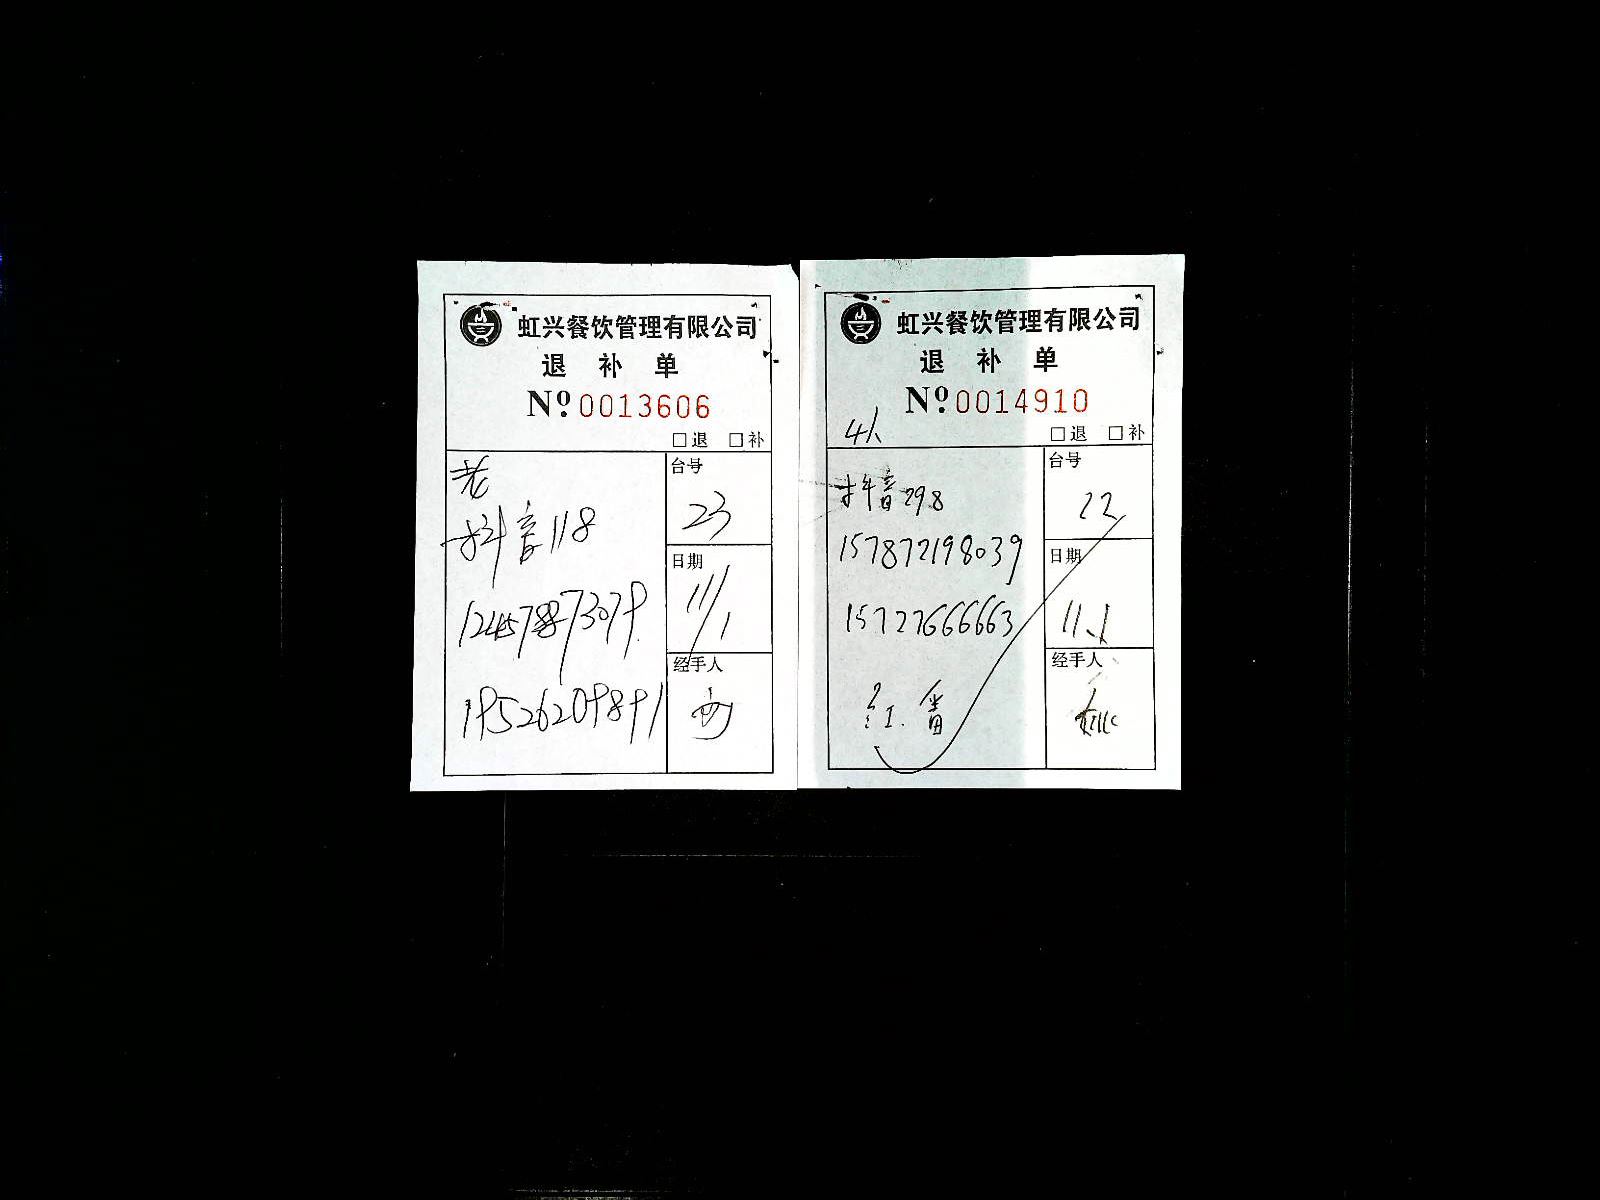 虹兴餐饮管理有限公司
退 补 单
No. 0013606
□退 □补
老
抖音118
台号
23
日期
11/1
19526209891
经手人
虹兴餐饮管理有限公司
退 补 单
No. 0014910
4人
□退 □补
抖音298
台号
22
157872198039
日期
15727666663
11.1
经手人
红番